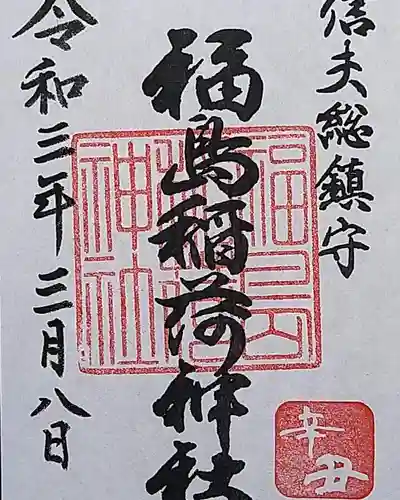 信夫総鎮守
福島稲荷神社
令和三年三月八日
福島
稲荷
神社
辛丑